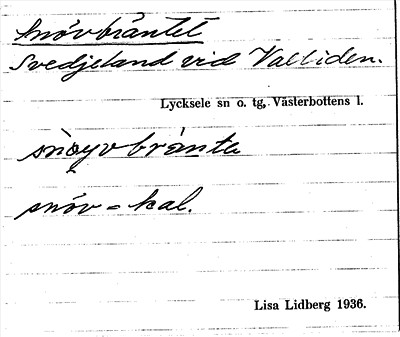 Snövbräntet
Svedjeland vid Vallliden.
Lycksele sn o. tg, Västerbottens l.
snöyvbränta
snöv = kal.
Lisa Lidberg 1936.